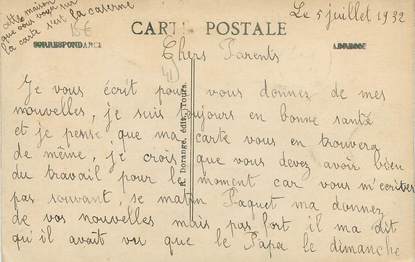 Cette maison
que vous voyez sur
la carte s'est la caserne
15€
CARTE POSTALE
Le 5 juillet 1932
CORRESPONDANCE
ADRESSE
Chers Parents
Je vous écrit pour vous donnez de mes
nouvelles, je suis toujours en bonne santé
et je pense que ma carte vous en trouvera
de même, je crois que vous devez avoir bien
du travail pour le moment car vous m'écrites
pas souvant, se matin Paquet ma donnez
de vos nouvelles mais pas fort il ma dit
qu'il avait vu que le Papa le dimanche
édit., Tours